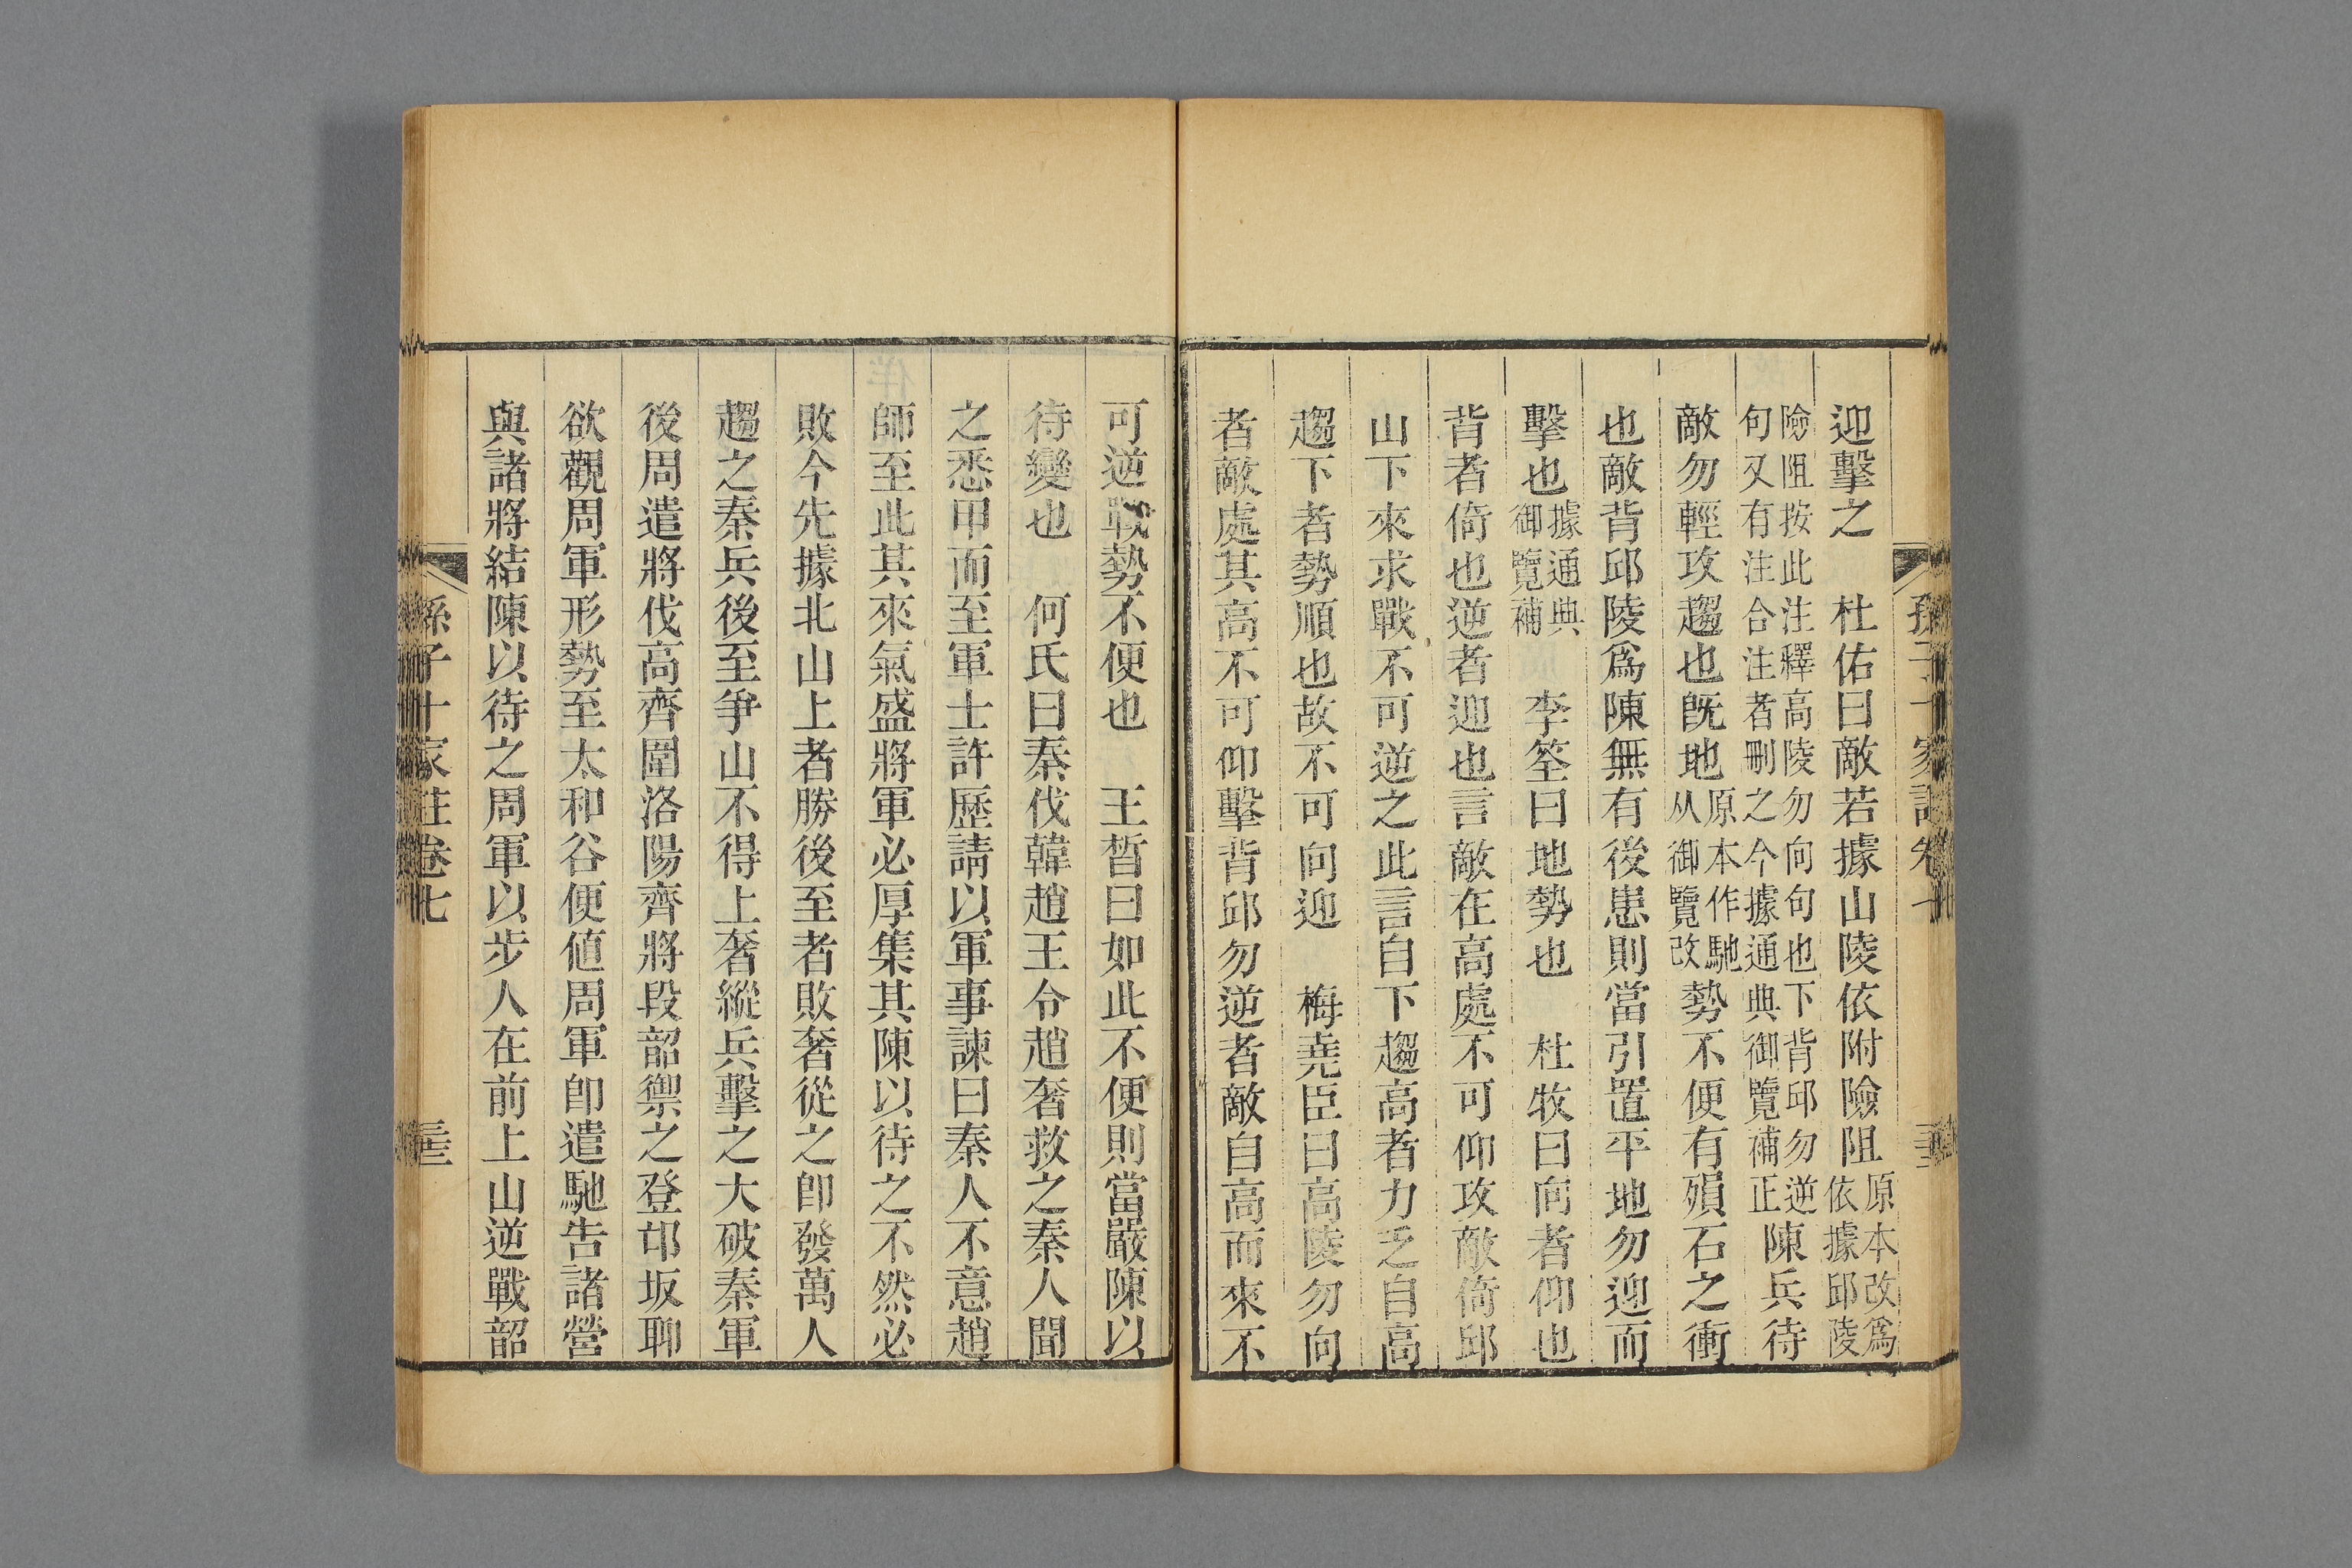 迎擊之　杜佑曰敵若據山陵依附險阻原本改爲依據邱陵
險阻按此注釋高陵勿向句也下背邱勿逆句又有注合注者刪之今據通典御覽補正陳兵待
敵勿輕攻趨也旣地原本作馳从御覽改勢不便有殞石之衝
也敵背邱陵爲陳無有後患則當引置平地勿迎而
擊也據通典御覽補　李筌曰地勢也　杜牧曰向者仰也
背者倚也逆者迎也言敵在高處不可仰攻敵倚邱
山下來求戰不可逆之此言自下趨高者力乏自高
趨下者勢順也故不可向迎　梅堯臣曰高陵勿向
者敵處其高不可仰擊背邱勿逆者敵自高而來不
可逆戰勢不便也　王晳曰如此不便則當嚴陳以
待變也　何氏曰秦伐韓趙王令趙奢救之秦人聞
之悉甲而至軍士許歷請以軍事諫曰秦人不意趙
師至此其來氣盛將軍必厚集其陳以待之不然必
敗今先據北山上者勝後至者敗奢從之卽發萬人
趨之秦兵後至爭山不得上奢縱兵擊之大破秦軍
後周遣將伐高齊圍洛陽齊將段韶禦之登邙坂聊
欲觀周軍形勢至太和谷便値周軍卽遣馳告諸營
與諸將結陳以待之周軍以步人在前上山逆戰韶
孫子十家註卷七